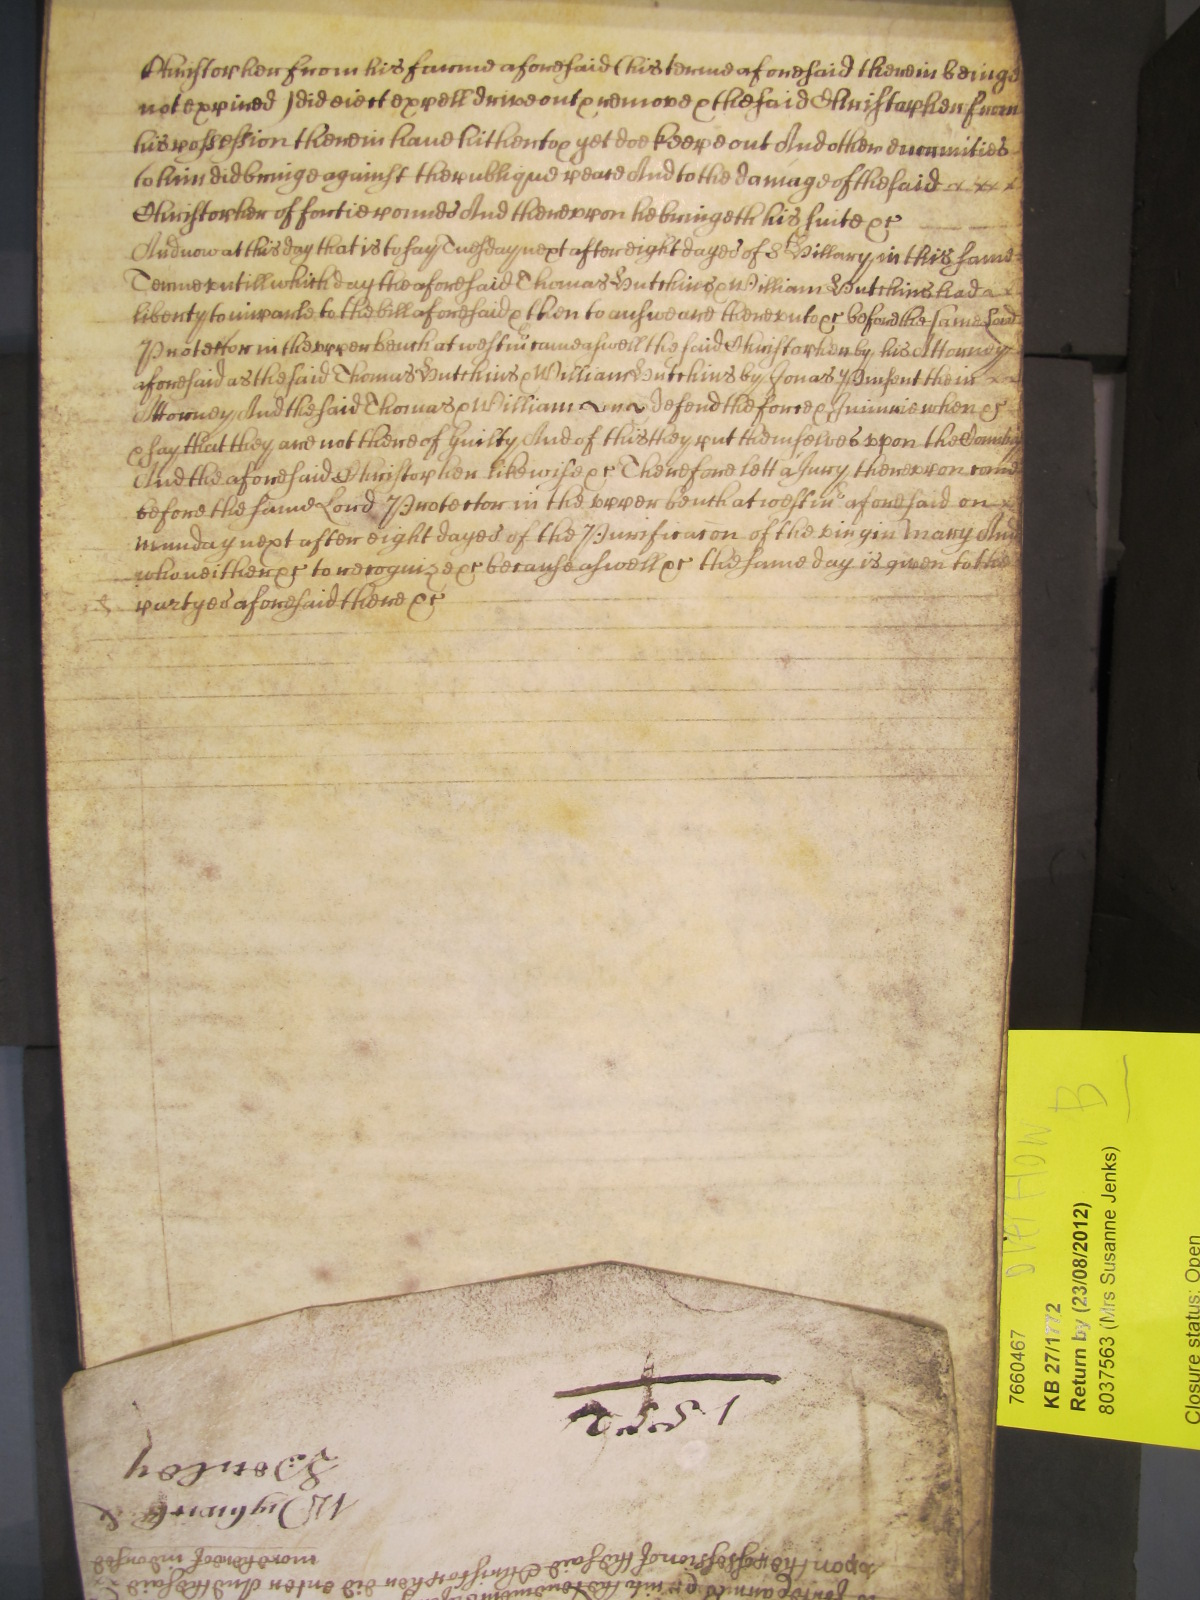 Christopher from his farme aforesaid (his terme aforesaid therein beinge
not expired ) did eiect expell drive out & remove & the said Christopher from
his possession therein have hitherto & yet doe keepe out And other enormities
to him did bringe against the publique peace And to the damage of the said
Christopher of fortie pounds And thereupon he bringeth his suite &c
And now at this day that is to say Tuesday next after eight dayes of St Hillary in this same
Terme untill which day the aforesaid Thomas Hutchins & William Hutchins had a
liberty to imparle to the bill aforesaid & then to answeare thereunto &c before the same Lord
Protector in the upper bench at westmr came aswell the said Christopher by his Attorney
aforesaid as the said Thomas Hutchins & William Hutchins by Jonas Pinsent their
Attorney And the said Thomas & William defend the force & Iniurie when &c
& say that they are not thereof guilty And of this they put themselves upon the Country
And the aforesaid Christopher likewise &c Therefore lett a Jury thereupon come
before the same Lord Protector in the upper bench at westmr aforesaid on
munday next after eight dayes of the Purificacon of the virgin Mary And
who neither &c to recognize &c because aswell &c the same day is given to the
partyes aforesaid there &c
7660467
KB 27/1772
Return by (23/08/2012)
8037563 (Mrs Susanne Jenks)
Closure status: Open
B
1552
upon the possession of the said Christopher did enter And the said
more thereof indorsed